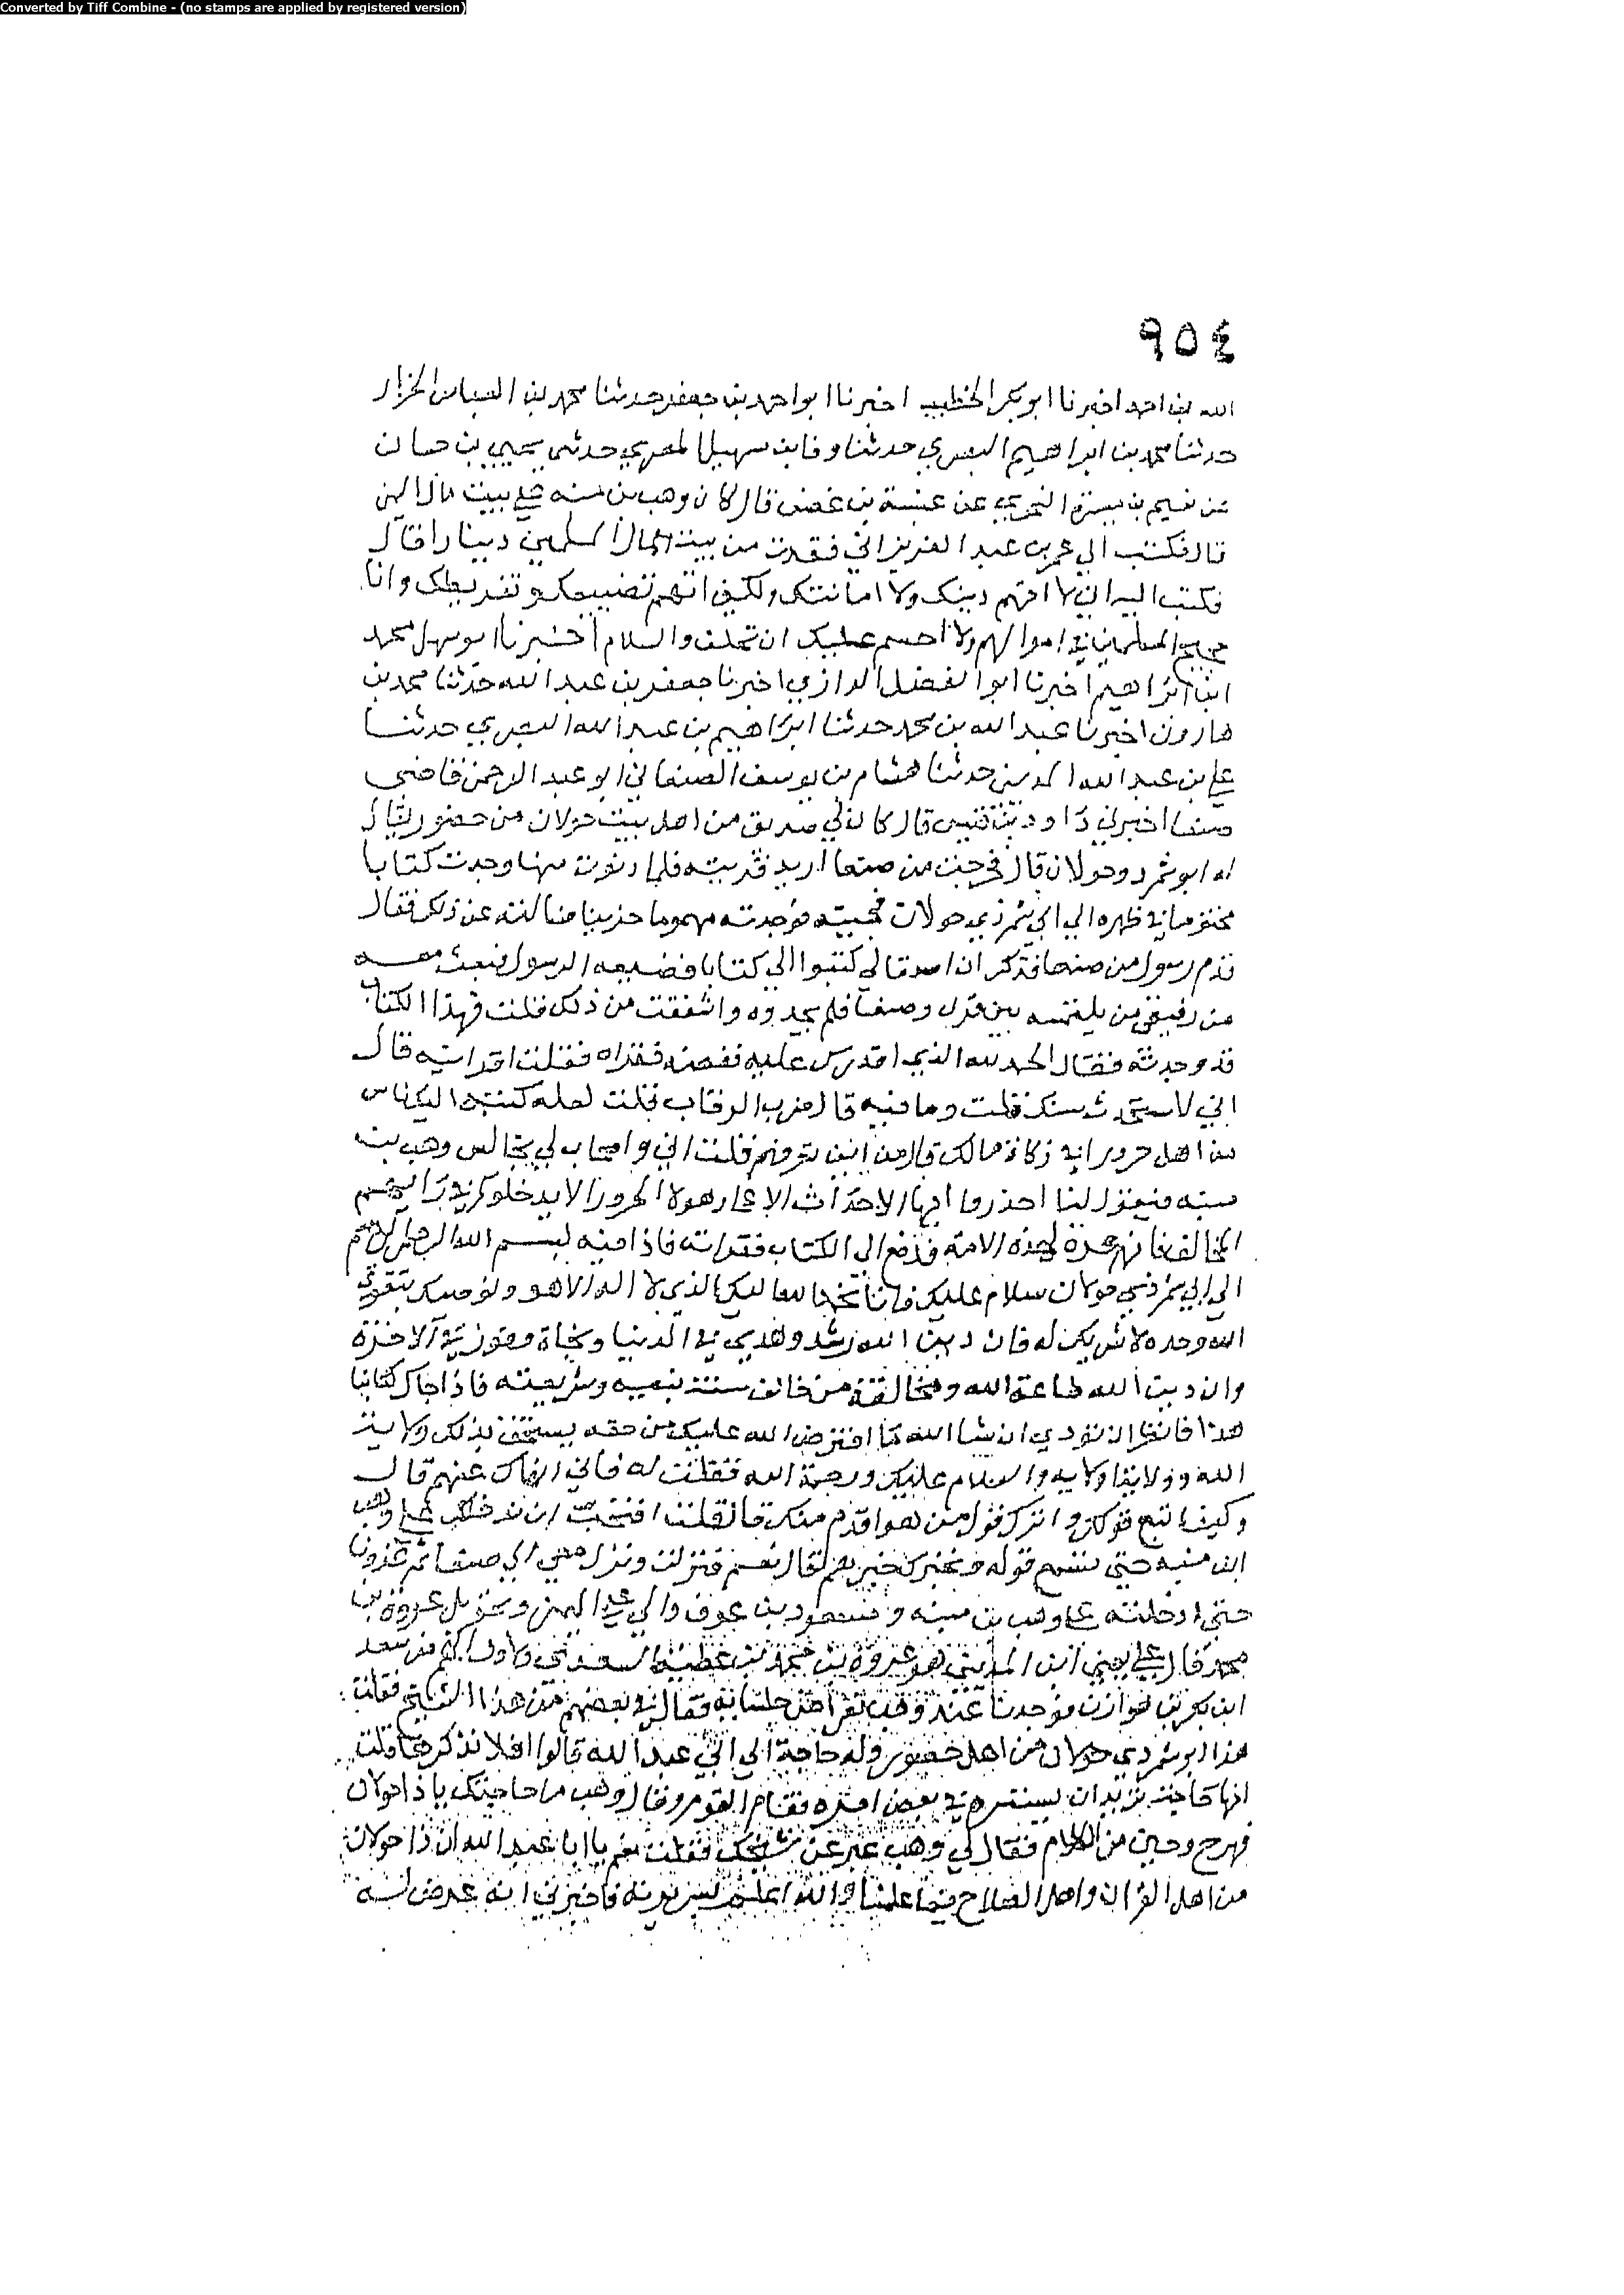 Converted by Tiff Combine - (no stamps are applied by registered version)
٩٥٤
الله بن احمد اخبرنا ابو بكر الخطيب اخبرنا ابو احمد بن جعفر حدثنا محمد بن العباس الخزار
حدثنا محمد بن ابراهيم البصري حدثنا وفا بن سهيل المصري حدثني يحيى بن حسان
عن نعيم بن ميسرة النحوي عن عنبسة بن غصن قال كان وهب بن منبه على بيت مال اليمن
قال فكتب الى عمر بن عبد العزيز اني فقدت من بيت مال المسلمين دينارا قال
فكتب اليه اني لا اتهم دينك ولا امانتك ولكن اتهم تضييعك وتفريطك وانا
حجيج المسلمين في اموالهم ولا عليك ان تحلف والسلام اخبرنا ابو سهل محمد
ابن ابراهيم اخبرنا ابو الفضل الرازي اخبرنا جعفر بن عبد الله حدثنا محمد بن
هارون اخبرنا عبد الله بن محمد حدثنا ابراهيم بن عبد الله البصري حدثنا
علي بن عبد الله المديني حدثنا هشام بن يوسف الصنعاني ابو عبد الرحمن قاضي
صنعا اخبرني داود بن قيس قال كان لي صديق من اهل بيت حولان من حضور يقال
له ابو شمر ذو حولان قال فخرجت من صنعا اريد قريته فلما دنوت منها وجدت كتابا
مختوما في ظهره الى ابي شمر ذي حولان فجيته فوجدته مهموما حزينا فسالته عن ذلك فقال
قدم رسول من صنعا فذكر ان اصدقا لي كتبوا الي كتابا فضيعه الرسول فبعث معه
من رفيقي من يلتمسه بين قرى وصنعا فلم يجدوه واشفقت من ذلك قلت فهذا الكتاب
قد وجدته فقال الحمد لله الذي اقدرني عليه ففضه فقراه فقلت اقرانيه قال
اني لاستحدث سنك قلت وما فيه قال ضرب الرقاب قلت لعله كتبه اليك ناس
من اهل حرورا في زكاة مالك قال من اين تعرفهم قلت اني واصحاب لي نجالس وهب بن
منبه فيقول لنا احذروا ايها الاحداث الاغمار هولا الحرورا لا يدخلوكم في رايهم
المخالف فانهم عرة لهذه الامة فدفع الى الكتاب فقراته فاذا فيه بسم الله الرحمن الرحيم
الى ابي شمر ذي حولان سلام عليك فانا نحمد اليك الله الذي لا اله الا هو ونوصيك بتقوى
الله وحده لا شريك له فان دين الله رشد وهدى في الدنيا ونجاة وفوز في الاخرة
وان دين الله طاعة الله ومخالفة من خالف سنة نبيه وشريعته فاذا جاك كتابنا
هذا فانظر ان تودي ان شا الله ما افترض الله عليك من حقه تستحق بذلك ولاية
الله وولاية اوليايه والسلام عليك ورحمة الله فقلت له فاني انهاك عنهم قال
وكيف اتبع قولك واترك قول من هو اقدم منك قال قلت افتحب ان ندخلك على وهب
ابن منبه حتى تسمع قوله ويخبرك خبرهم قال نعم فنزلت ونزل معي الى صنعا ثم غدونا
حتى ادخلته على وهب بن منبه ومسعود بن عوف والي على اليمن من قبل عروة بن
محمد قال علي يعني ابن المديني هو عروة بن محمد بن عطية السعدي من سعد
ابن بكر بن هوازن فوجدنا عند وهب نفرا من جلسايه فقال لي بعضهم من هذا الشيخ فقلت
هذا ابو شمر ذي حولان من اهل حضور وله حاجة الى ابي عبد الله قالوا افلا نذكرها قلت
انها حاجة يريد ان يستشيره في بعض امره فقام القوم وقال وهب ما حاجتك يا ذا حولان
فهرج وجبن من الكلام فقال لي وهب عبر عن شيخك فقلت نعم يا ابا عبد الله ان ذا حولان
من اهل القران واهل الصلاح فيما علمنا والله اعلم بسريرته فاخبرني انه عرض له